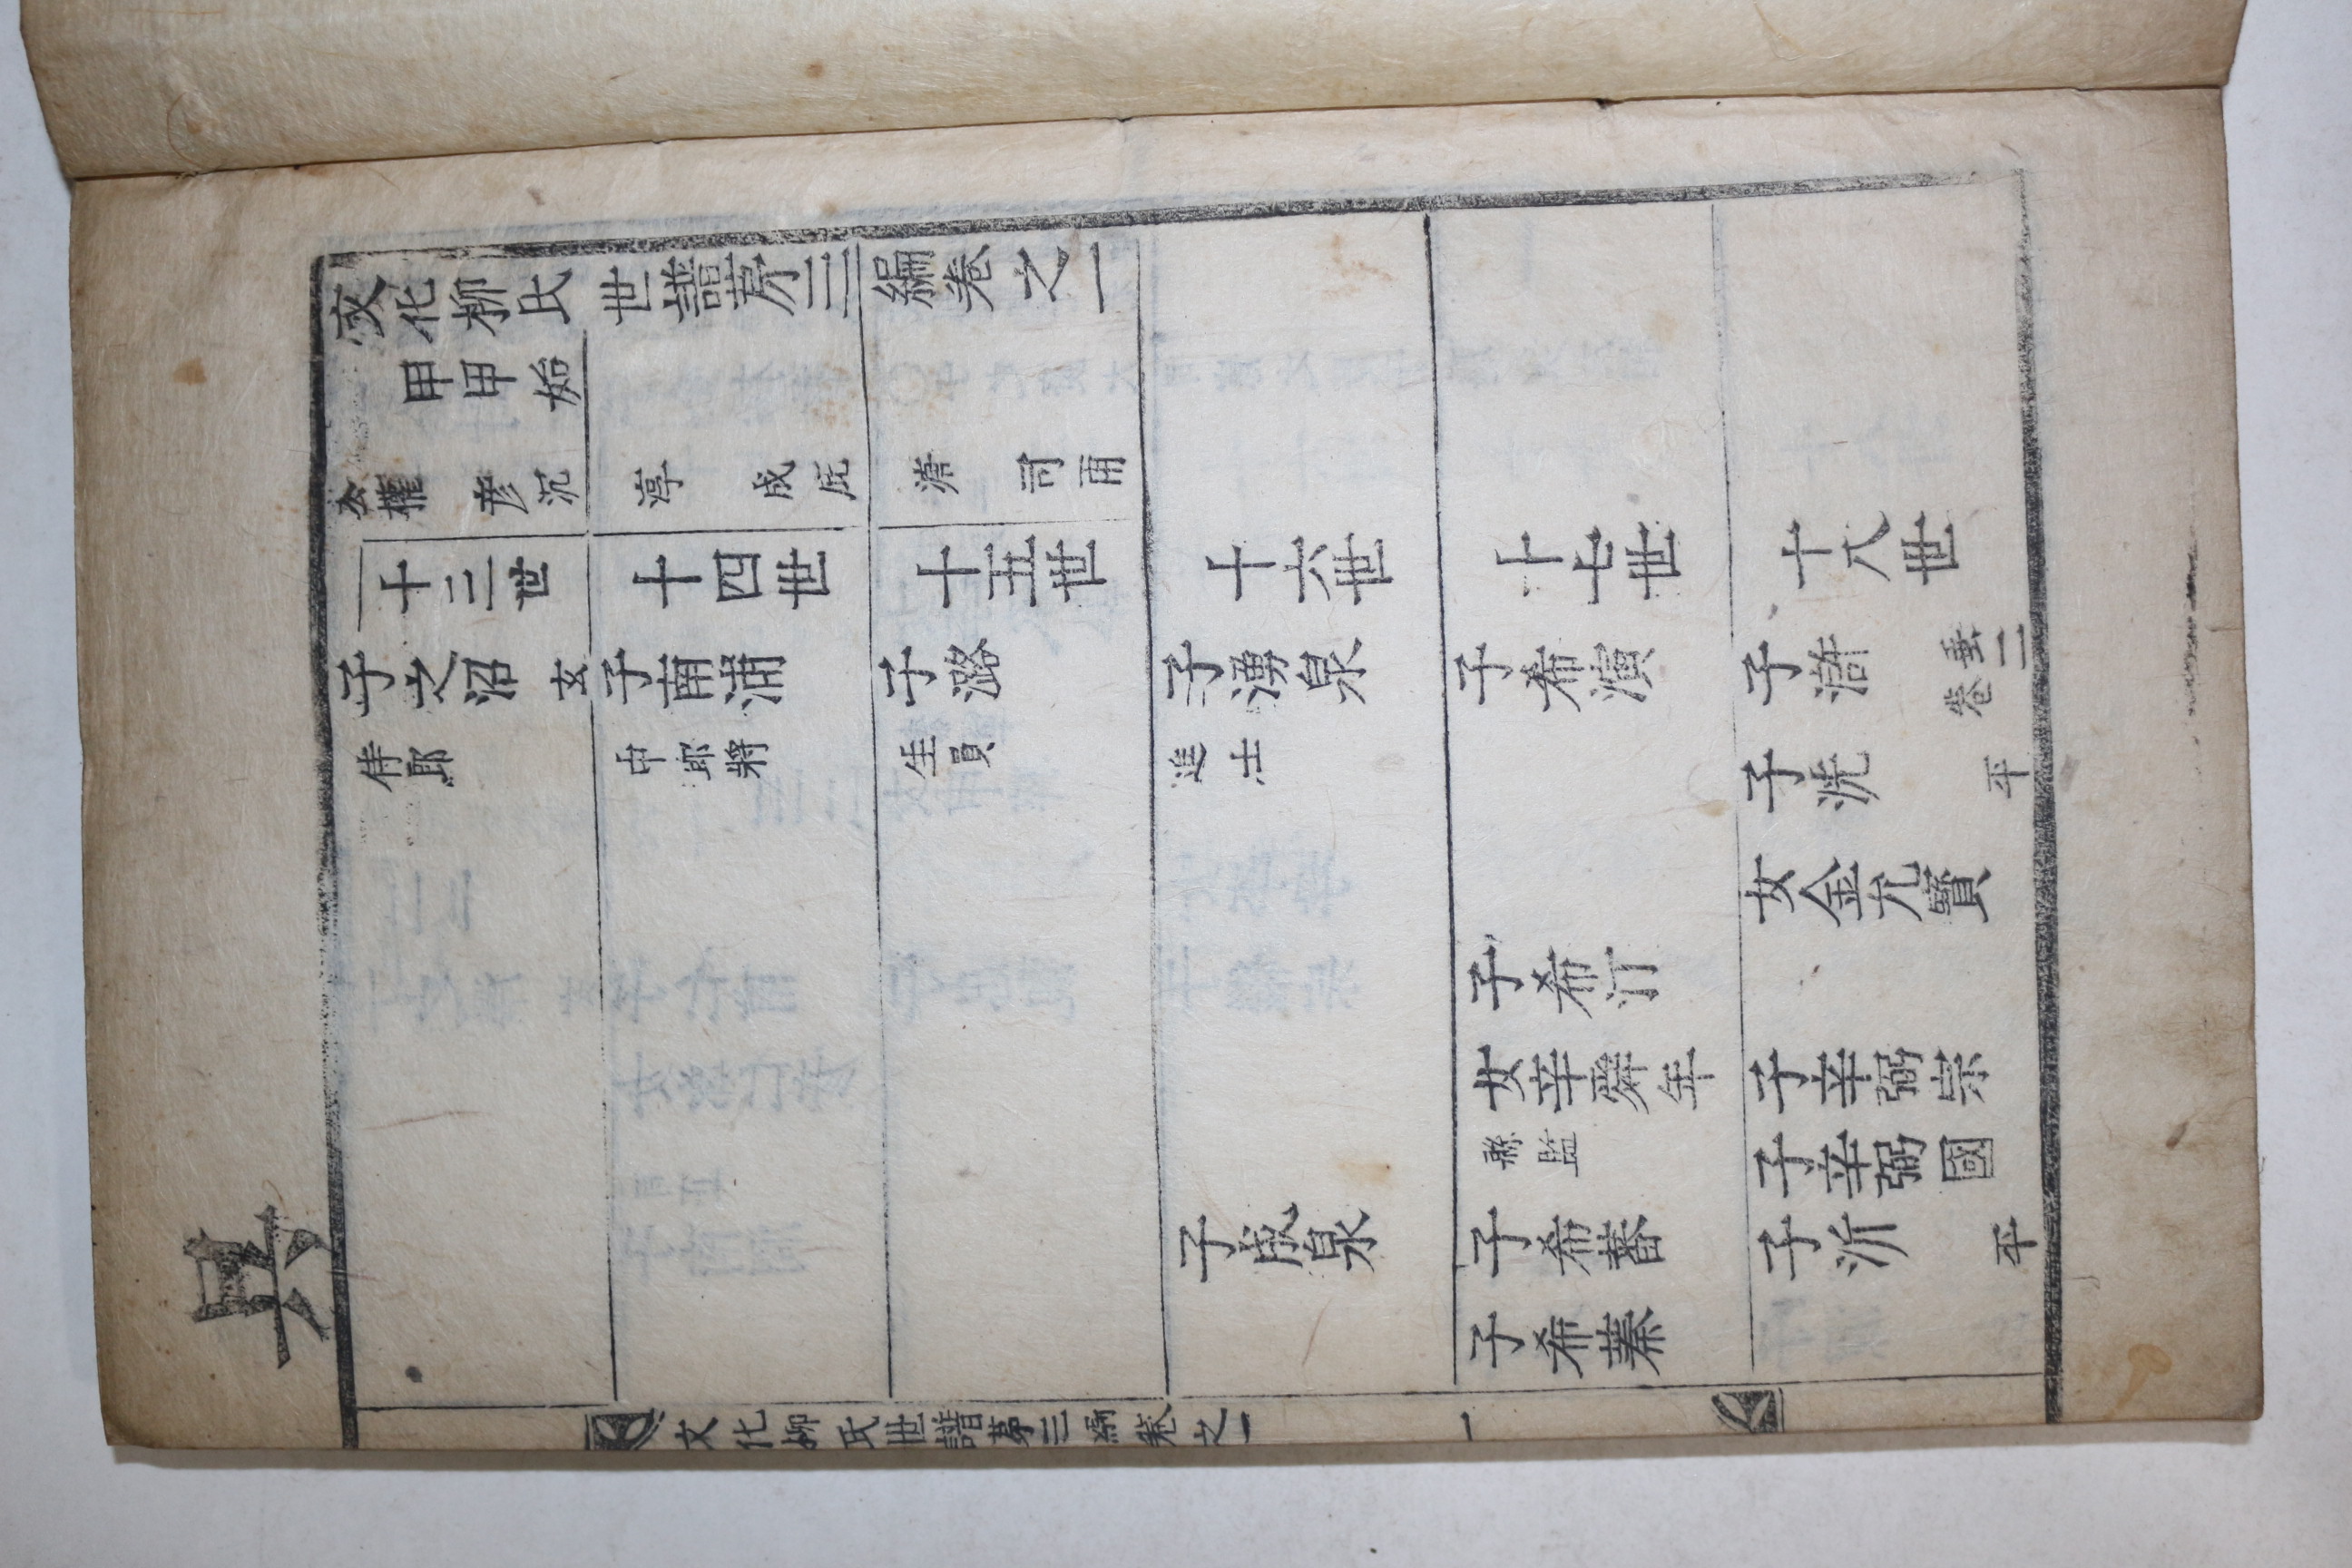 文化柳氏世譜苐三編卷之一
甲甲始
公權 彦沉
淳 成庇
濳 司雨
十三世
十四世
十五世
十六世
十七世
十八世
子之沼 玄
侍郎
子南浦
中郎將
子潞
生員
子湧泉
進士
子成泉
子希演
子希汀
女辛舜年
縣監
子希蕃
子希蓁
子滸 垂二卷
子洸 平
女金允寶
子辛弼宗
子辛弼國
子沂 平
共
文化柳氏世譜苐三編卷之一
一